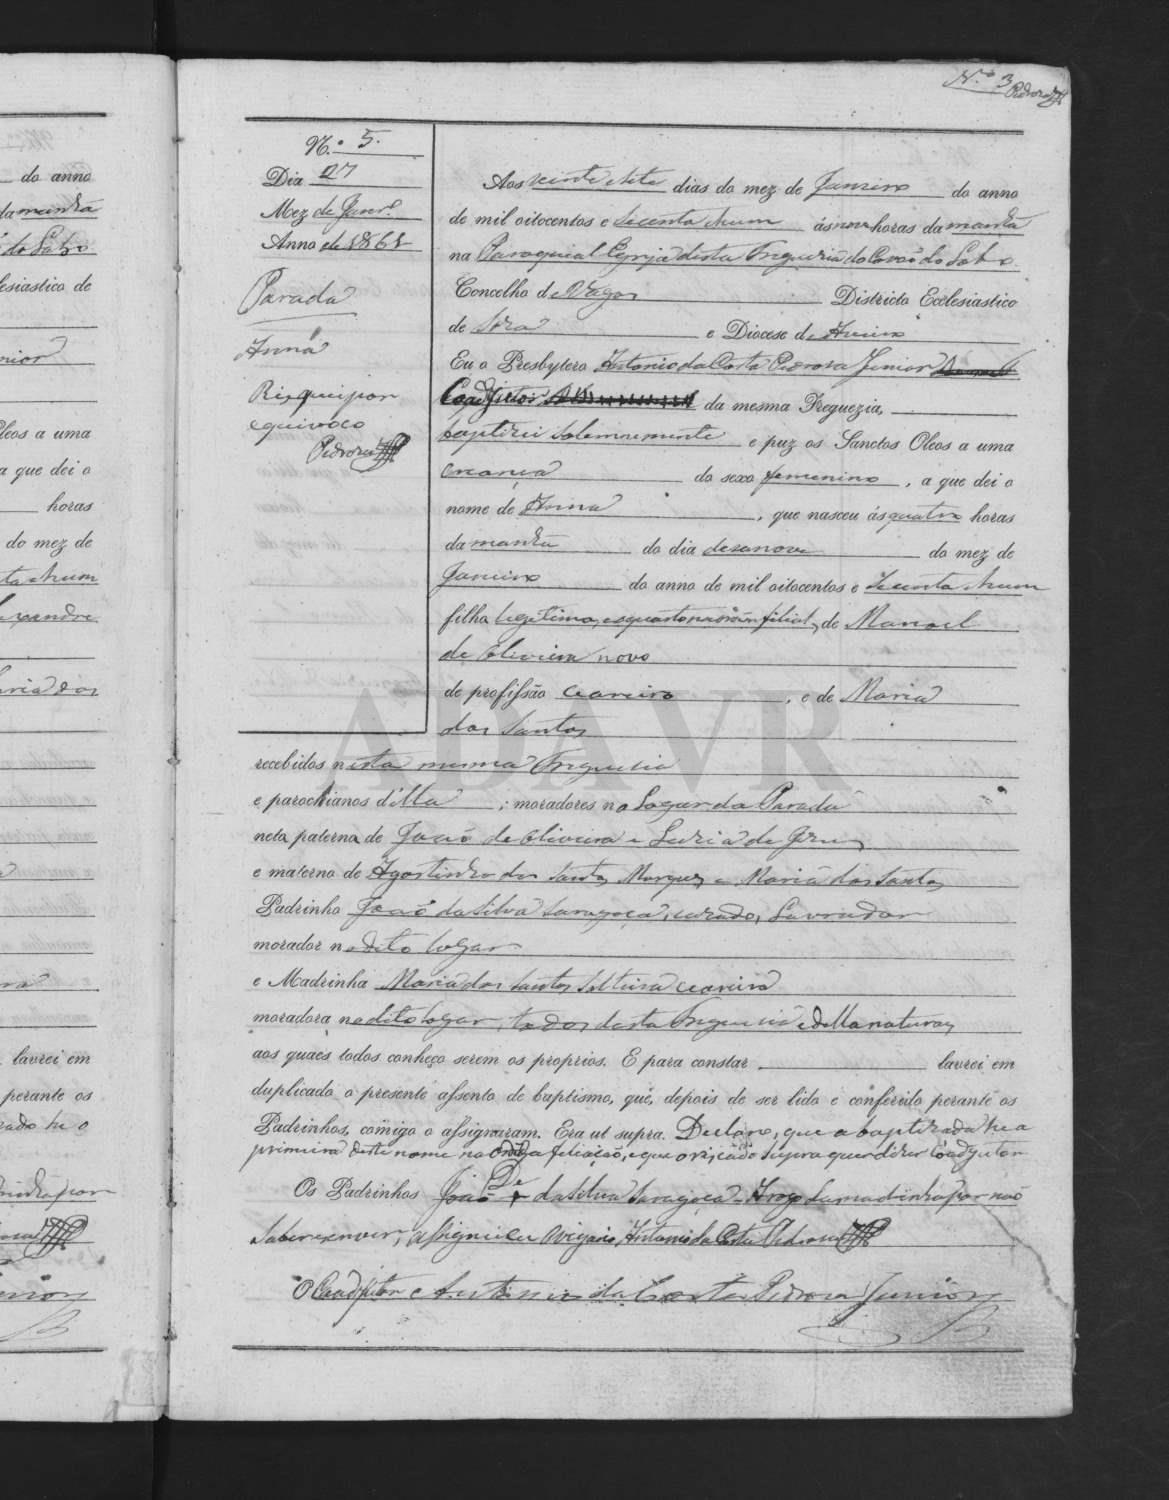 N.º 3
Pedroza
N.º 5.
Dia 27
Mez de Janr.º
Anno de 1861
Parada
Anna
Risquei por
equivoco
Pedroza
Aos vinte e sete dias do mez de Janeiro do anno
de mil oitocentos e secenta e hum ás nove horas da manhã
na Paroquial Egreja desta Freguezia do Covão do Lobo
Concelho de Vagos Districto Ecclesiastico
de e Diocese de Aveiro
Eu o Presbytero Antonio da Costa Pedroza Junior
Coadjutor da mesma Freguezia,
baptizei solemnemente e puz os Sanctos Oleos a uma
creança do sexo femenino, a que dei o
nome de Anna, que nasceu ás quatro horas
da manhã do dia desanove do mez de
Janeiro do anno de mil oitocentos e secenta e hum
filha legitima, de Manoel
de Oliveira novo
de profissão ceareiro, e de Maria
dos Santos
recebidos nesta mesma Freguesia
e parochianos d'ella; moradores no Logar da Parada
neta paterna de João de Oliveira e Luzia de Jezus
e materna de Agostinho dos Santos Marques e Maria dos Santos
Padrinho João da Silva Saragoça, cazado, Lavrador
morador no dito logar
e Madrinha Maria dos Santos Solteira ceareira
moradora no dito logar, todos desta Freguesia e della naturaes
aos quaes todos conheço serem os proprios. E para constar lavrei em
duplicado o presente assento de baptismo, que, depois de ser lido e conferido perante os
Padrinhos, comigo o assignaram. Era ut supra. Declaro, que a baptizada he a
primeira deste nome na filiação, e que o riscado supra quer dizer Coadjutor
Os Padrinhos João da Silva Saragoça - A rogo da madrinha por não
saber escrever, assignei eu o vigario Antonio da Costa Pedroza
O Coadjutor Antonio da Costa Pedroza Junior
ADAVR
do anno
da manhã
do Lobo
esiastico de
nior
leos a uma
a que dei o
horas
do mez de
ta e hum
lexandre
aria dos
lavrei em
perante os
zado he o
drinha por